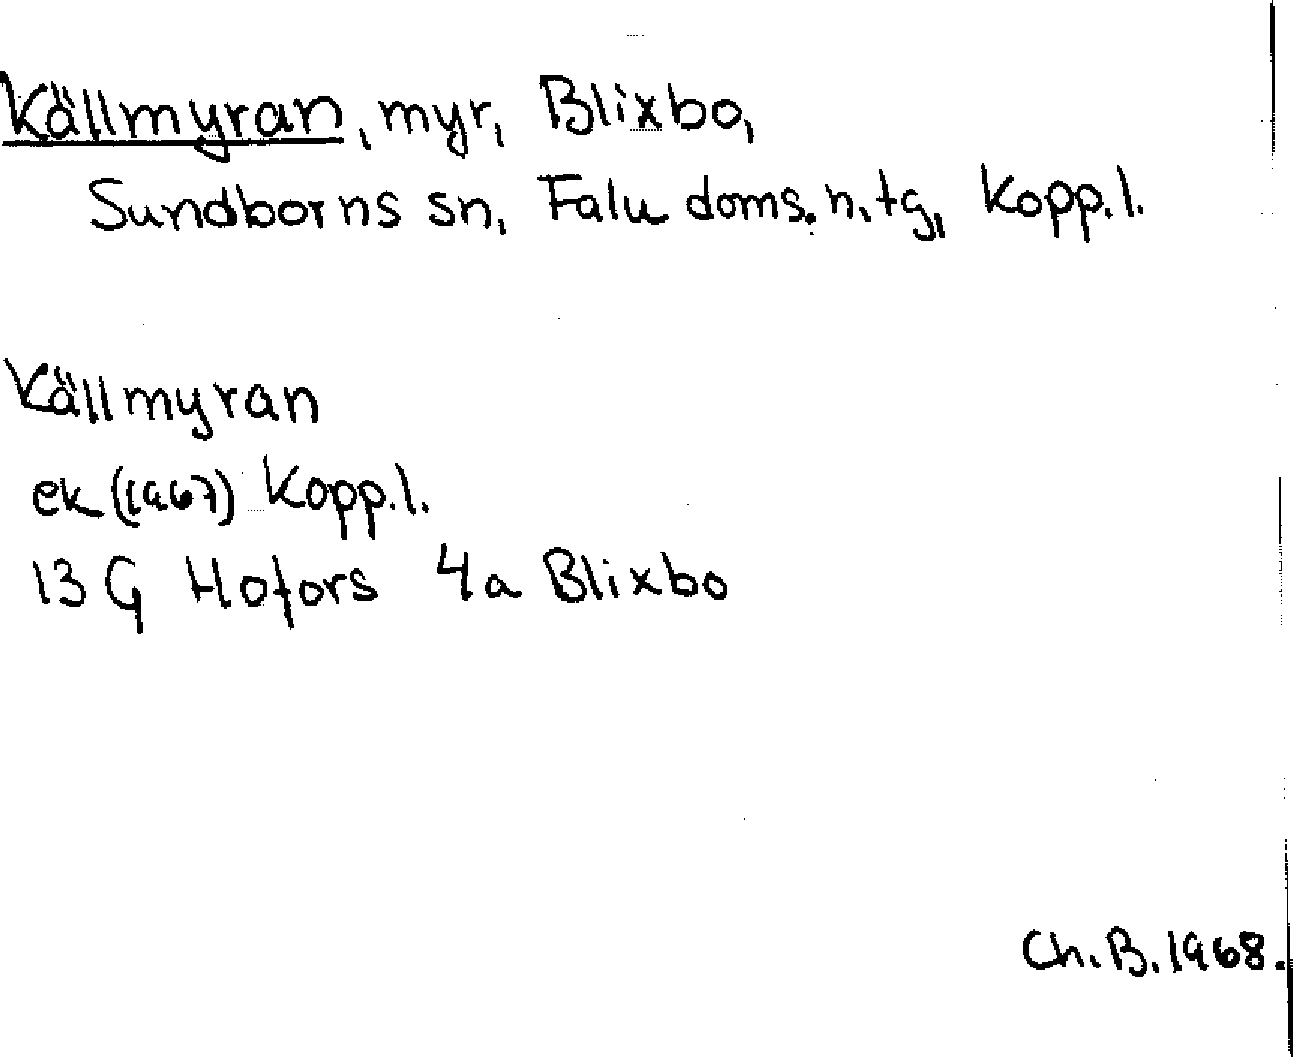 Källmyran, myr, Blixbo,
Sundborns sn, Falu doms.n.tg, Kopp.l.
Källmyran
ek (1967) Kopp.l.
13 G Hofors 4a Blixbo
Ch.B.1968.